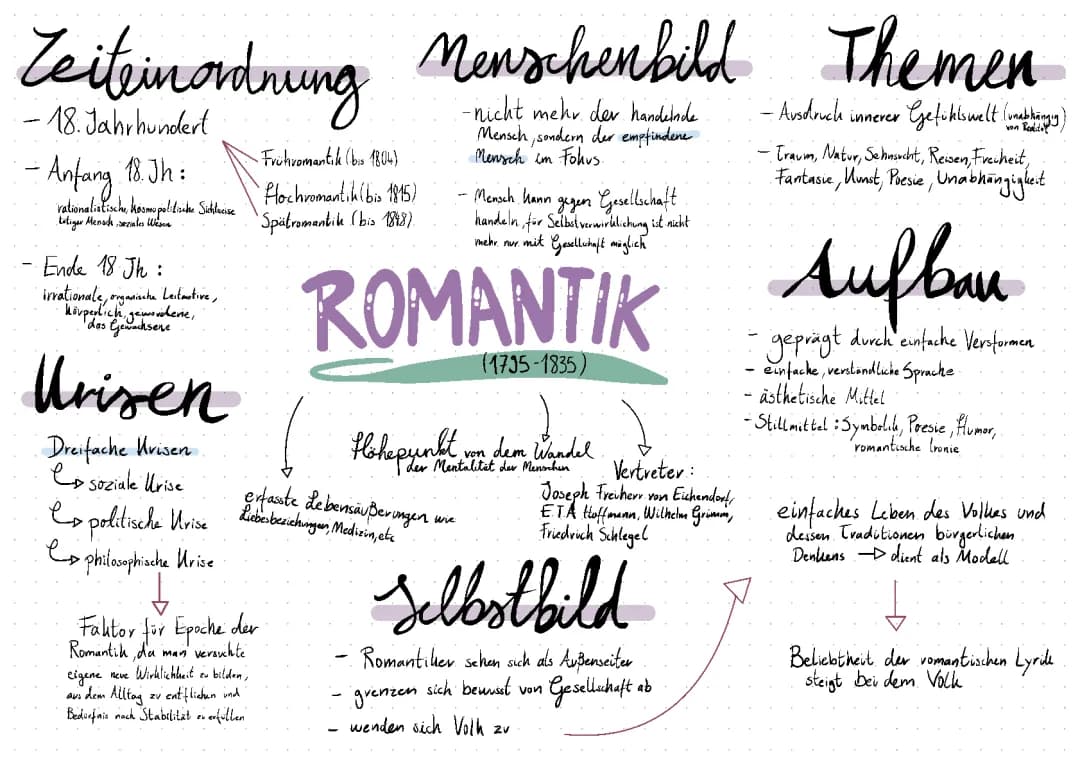 Zeiteinordnung
- 18. Jahrhundert
Frühromantik (bis 1804)
Hochromantik (bis 1815)
Spätromantik (bis 1848)
- Anfang 18. Jh :
rationalistische, kosmopolitische Sichtweise
tätiger Mensch, soziales Wesen
- Ende 18 Jh :
irrationale, organische Leitmotive,
körperlich, gewordene,
das Gewachsene
Menschenbild
- nicht mehr der handelnde
Mensch, sondern der empfindene
Mensch im Fokus
- Mensch kann gegen Gesellschaft
handeln, für Selbstverwirklichung ist nicht
mehr nur mit Gesellschaft möglich
Themen
- Ausdruck innerer Gefühlswelt (unabhängig
von Realität)
- Traum, Natur, Sehnsucht, Reisen, Freiheit,
Fantasie, Kunst, Poesie, Unabhängigkeit
ROMANTIK
(1795-1835)
erfasste Lebensäußerungen wie
Liebesbeziehungen, Medizin, etc
Höhepunkt von dem Wandel
der Mentalität der Menschen
Vertreter :
Joseph Freiherr von Eichendorf,
ETA Hoffmann, Wilhelm Grimm,
Friedrich Schlegel
Aufbau
- geprägt durch einfache Versformen
- einfache, verständliche Sprache
- ästhetische Mittel
- Stillmittel : Symbolik, Poesie, Humor,
romantische Ironie
Krisen
Dreifache Krisen
soziale Krise
politische Krise
philosophische Krise
Faktor für Epoche der
Romantik, da man versuchte
eigene neue Wirklichkeit zu bilden,
aus dem Alltag zu entfliehen und
Bedürfnis nach Stabilität zu erfüllen
Selbstbild
- Romantiker sehen sich als Außenseiter
- grenzen sich bewusst von Gesellschaft ab
- wenden sich Volk zu
einfaches Leben des Volkes und
dessen Traditionen bürgerlichen
Denkens → dient als Modell
Beliebtheit der romantischen Lyrik
steigt bei dem Volk